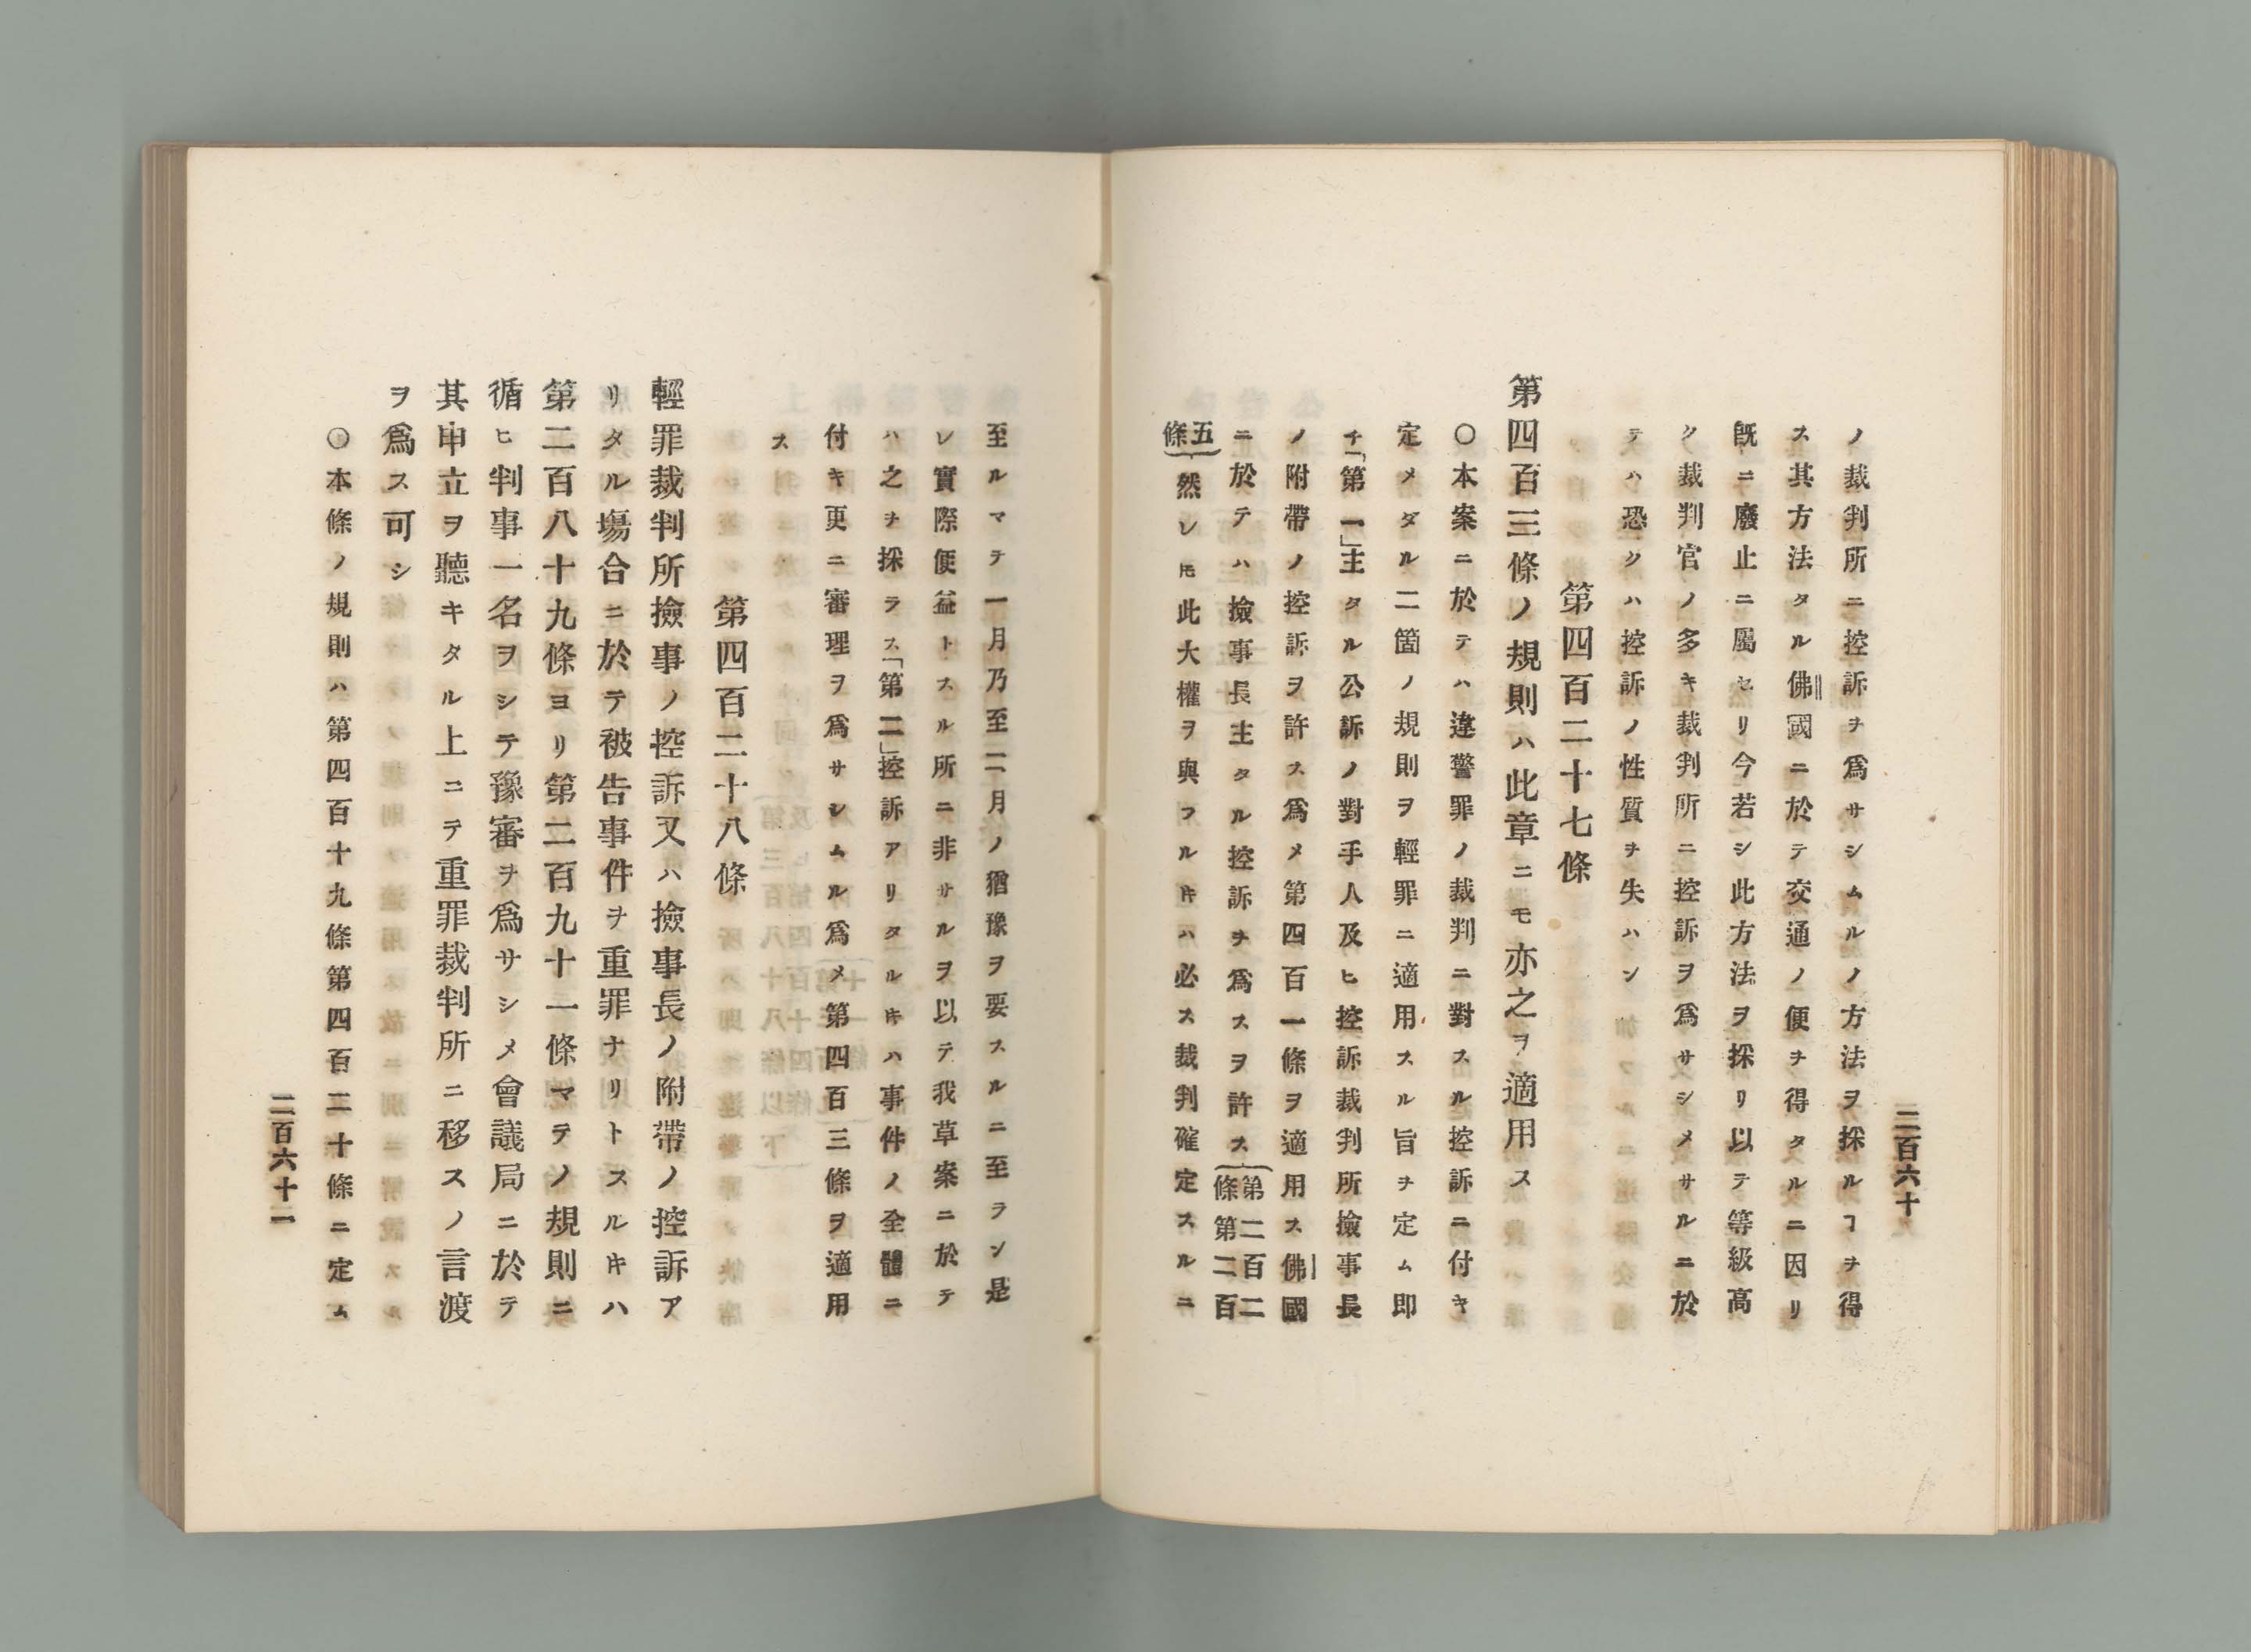 二百六十
ノ裁判所ニ控訴ヲ爲サシムルノ方法ヲ採ルヿヲ得
ス其方法タル佛國ニ於テ交通ノ便ヲ得タルニ因リ
旣ニ廢止ニ屬セリ今若シ此方法ヲ採リ以テ等級高
ク裁判官ノ多キ裁判所ニ控訴ヲ爲サシメサルニ於
テハ恐クハ控訴ノ性質ヲ失ハン
第四百二十七條
第四百三條ノ規則ハ此章ニモ亦之ヲ適用ス
〇本案ニ於テハ違警罪ノ裁判ニ對スル控訴ニ付キ
定メタル二箇ノ規則ヲ輕罪ニ適用スル旨ヲ定ム即
チ「第一」主タル公訴ノ對手人及ヒ控訴裁判所撿事長
ノ附帶ノ控訴ヲ許ス爲メ第四百一條ヲ適用ス佛國
ニ於テハ撿事長主タル控訴ヲ爲スヲ許ス(第二百二條第二百
五條)然レ𪜈此大權ヲ與フルキハ必ス裁判確定スルニ
至ルマテ一月乃至二月ノ猶豫ヲ要スルニ至ラン是
レ實際便益トスル所ニ非サルヲ以テ我草案ニ於テ
ハ之ヲ採ラス「第二」控訴アリタルキハ事件ノ全體ニ
付キ更ニ審理ヲ爲サシムル爲メ第四百三條ヲ適用
ス
第四百二十八條
輕罪裁判所撿事ノ控訴又ハ撿事長ノ附帶ノ控訴ア
リタル塲合ニ於テ被告事件ヲ重罪ナリトスルキハ
第二百八十九條ヨリ第二百九十一條マテノ規則ニ
循ヒ判事一名ヲシテ豫審ヲ爲サシメ會議局ニ於テ
其申立ヲ聽キタル上ニテ重罪裁判所ニ移スノ言渡
ヲ爲ス可シ
〇本條ノ規則ハ第四百十九條第四百二十條ニ定ム
二百六十一